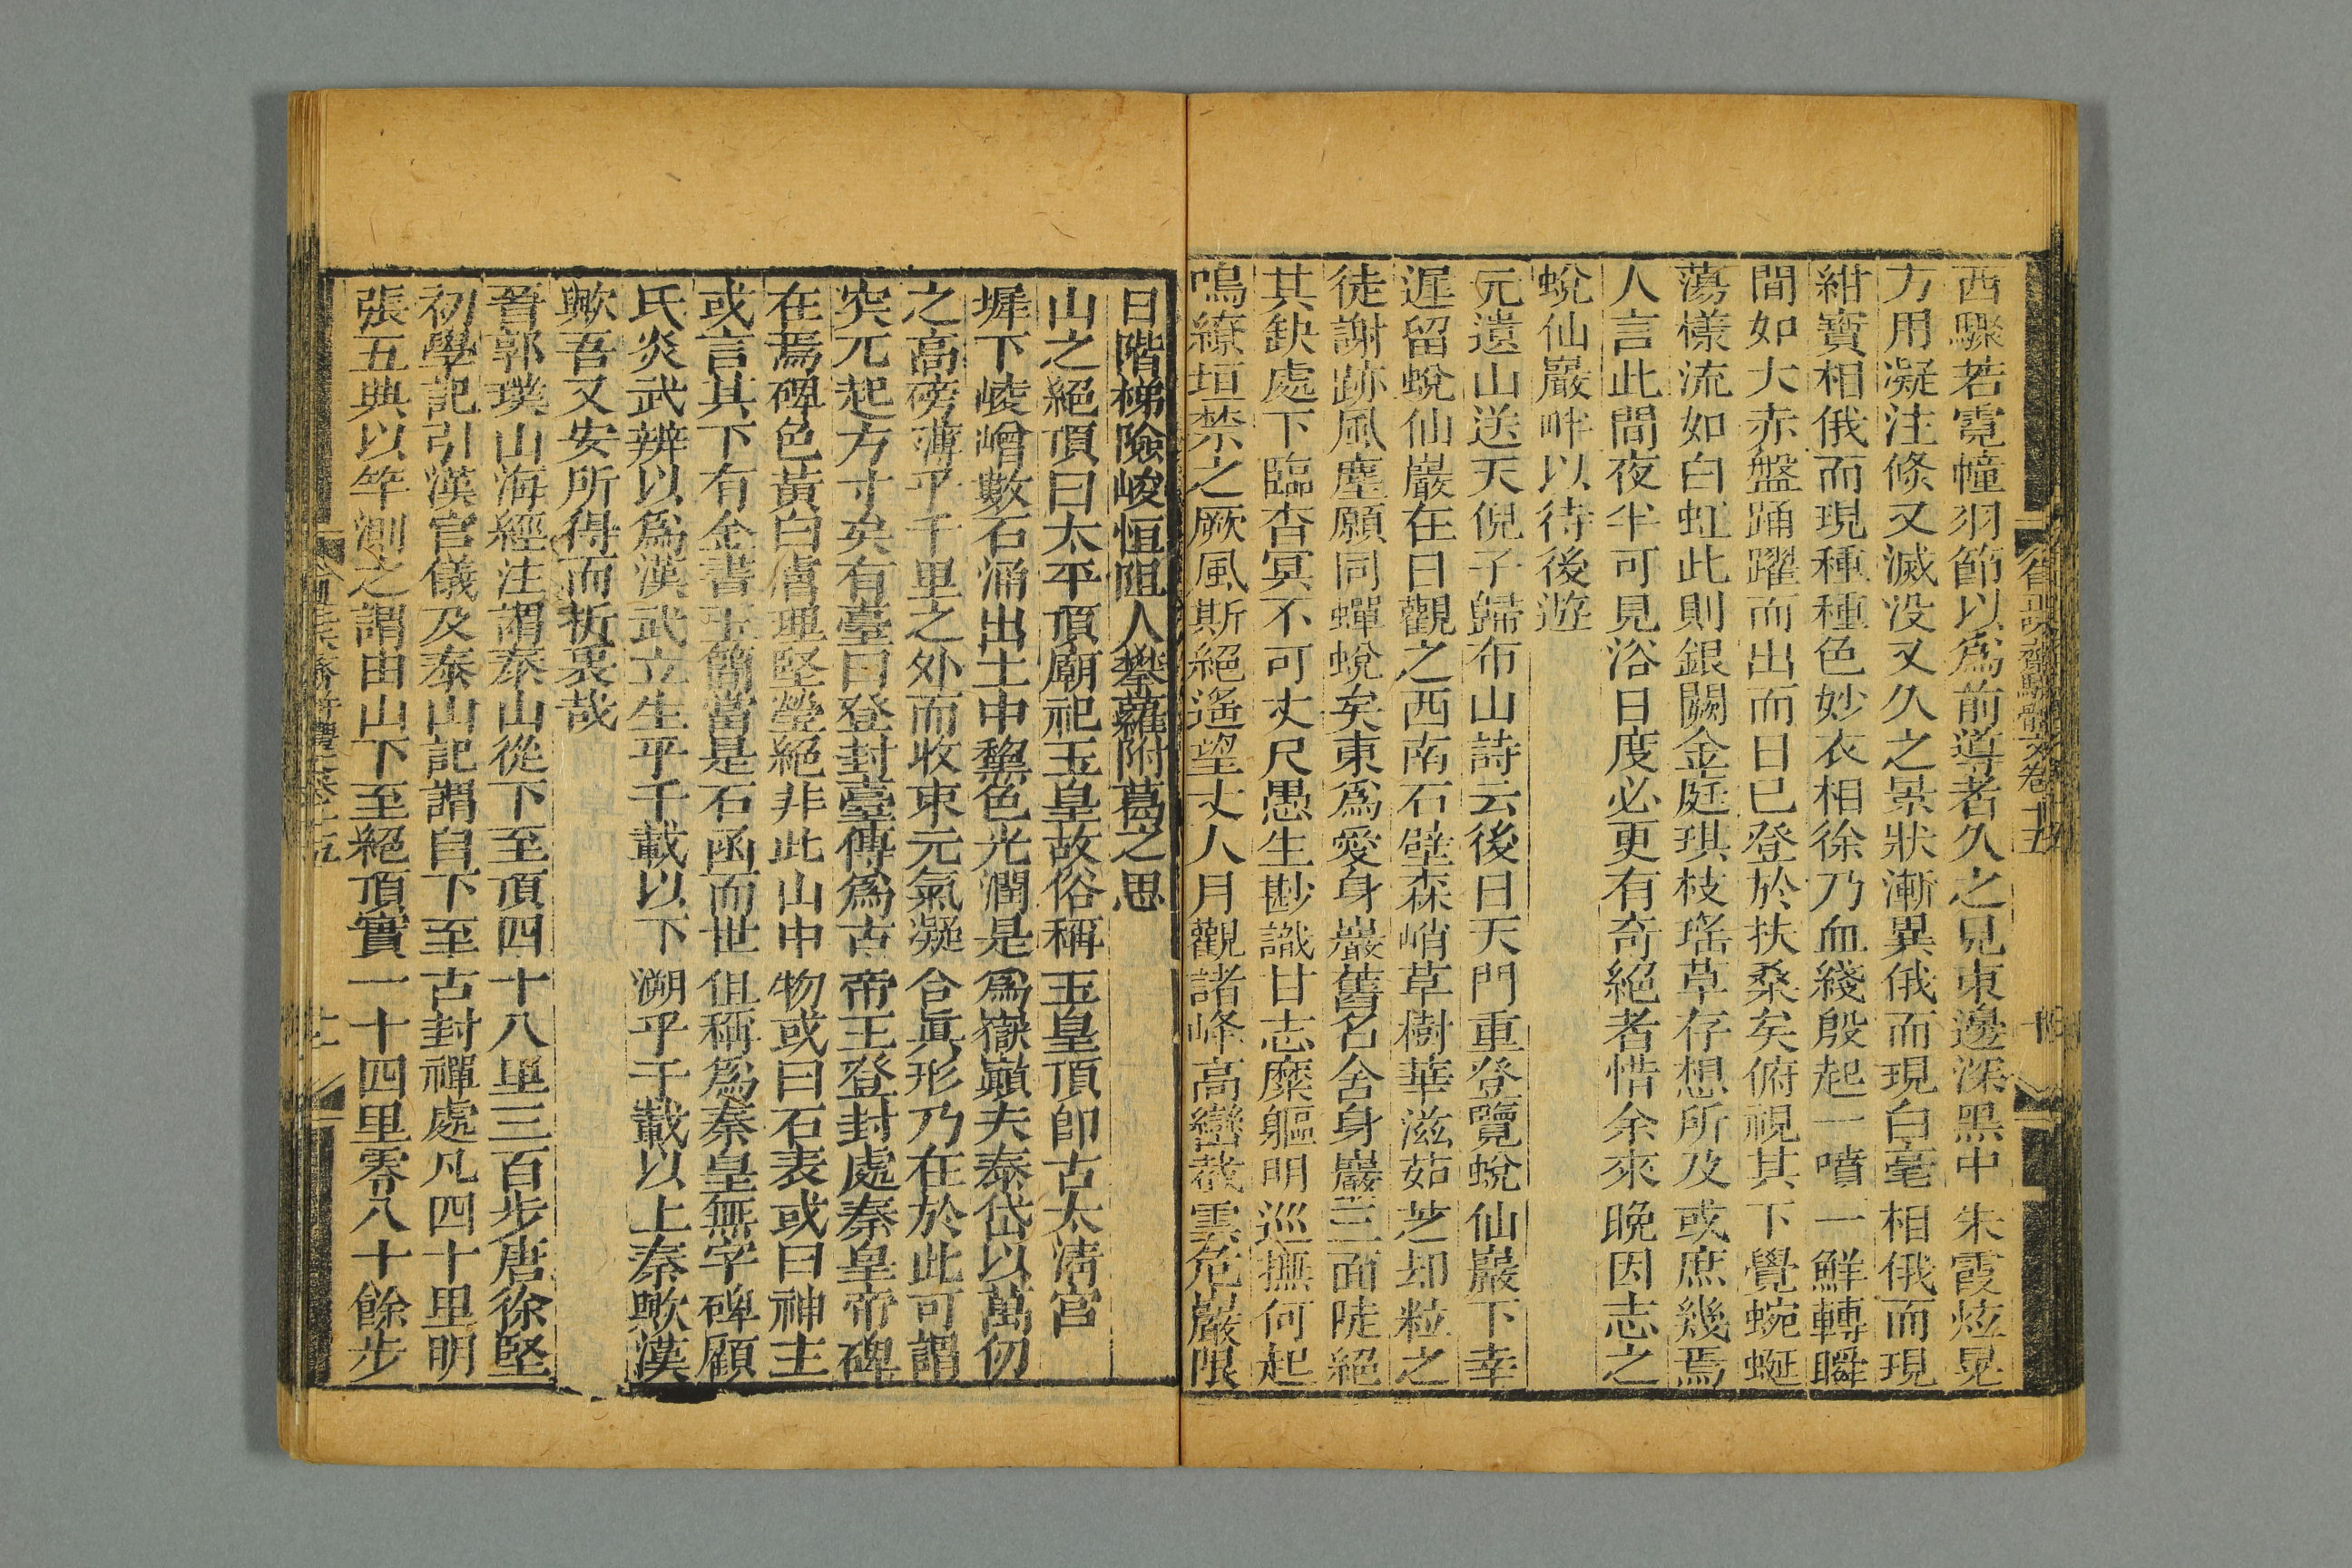 西驟若霓幢羽節以爲前導者久之見東邊深黑中朱霞炫晃
方用凝注倏又滅没又久之景狀漸異俄而現白毫相俄而現
紺寶相俄而現種種色妙衣相徐乃血綫殷起一噴一鮮轉瞬
間如大赤盤踊躍而出而日已登於扶桑矣俯視其下覺蜿蜒
蕩樣流如白虹此則銀闕金庭琪枝瑤草存想所及或庶幾焉
人言此間夜半可見浴日度必更有奇絕者惜余來晚因志之
蛻仙巖畔以待後遊
元遺山送天倪子歸布山詩云後日天門重登覽蛻仙巖下幸
遲留蛻仙巖在日觀之西南石壁森峭草樹華滋茹芝却粒之
徒謝跡風塵願同蟬蛻矣東爲愛身巖舊名舍身巖三面陡絕
其缺處下臨杳冥不可丈尺愚生尠識甘志糜軀明巡撫何起
鳴繚垣禁之厥風斯絕遙望丈人月觀諸峰高巒裁雲危巖限
日階梯險峻恒阻人攀蘿附葛之思
山之絕頂曰太平頂廟祀玉皇故俗稱玉皇頂卽古太淸宮
墀下崚嶒數石涌出土中黝色光潤是爲嶽巔夫泰岱以萬仞
之高磅薄乎千里之外而收束元氣凝合眞形乃在於此可謂
突兀起方寸矣有臺曰登封臺傳爲古帝王登封處秦皇帝碑
在焉碑色黃白膚理堅瑩絕非此山中物或曰石表或曰神主
或言其下有金書玉簡當是石函而世但稱爲秦皇無字碑顧
氏炎武辨以爲漢武立生乎千載以下溯乎千載以上秦歟漢
歟吾又安所得而折衷哉
晉郭璞山海經注謂泰山從下至頂四十八里三百步唐徐堅
初學記引漢官儀及泰山記謂自下至古封禪處凡四十里明
張五典以竿測之謂由山下至絕頂實一十四里零八十餘步